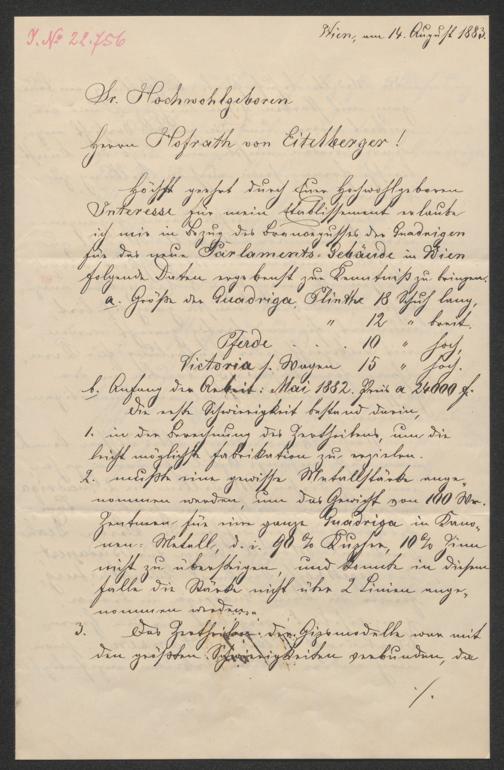 J. № 22.756
Wien, am 14. August 1883.
Sr. Hochwohlgeboren
Herrn Hofrath von Eitelberger!
Höchst geehrt durch Euer Hochwohlgeboren
Interesse für mein Etablissement erlaube
ich mir in Bezug des Broncegusses der Quadrigen
für das neue Parlaments-Gebäude in Wien
folgende Daten ergebenst zur Kenntniß zu bringen.
a. Größe der Quadriga, Plinthe 18 Schuh lang,
" 12 " breit.
Pferde . . . . 10 " hoch,
Victoria s. Wagen 15 " hoch.
b. Anfang der Arbeit: Mai 1882. Preis a 24000 f.
Die erste Schwierigkeit bestand darin,
1. in der Berechnung des Zertheilens, um die
leicht möglichste Fabrikation zu erzielen.
2. mußte eine gewisse Metallstärke ange-
nommen werden, um das Gewicht von 100 Wr.
Zentner für eine ganze Quadriga in Kano-
nen-Metall, d. i. 90 % Kupfer, 10 % Zinn
nicht zu übersteigen, und konnte in diesem
Falle die Stärke nicht über 2 Linien ange-
nommen werden.
3. Das Zertheilen der Gipsmodelle war mit
den größten Schwierigkeiten verbunden, da
./.